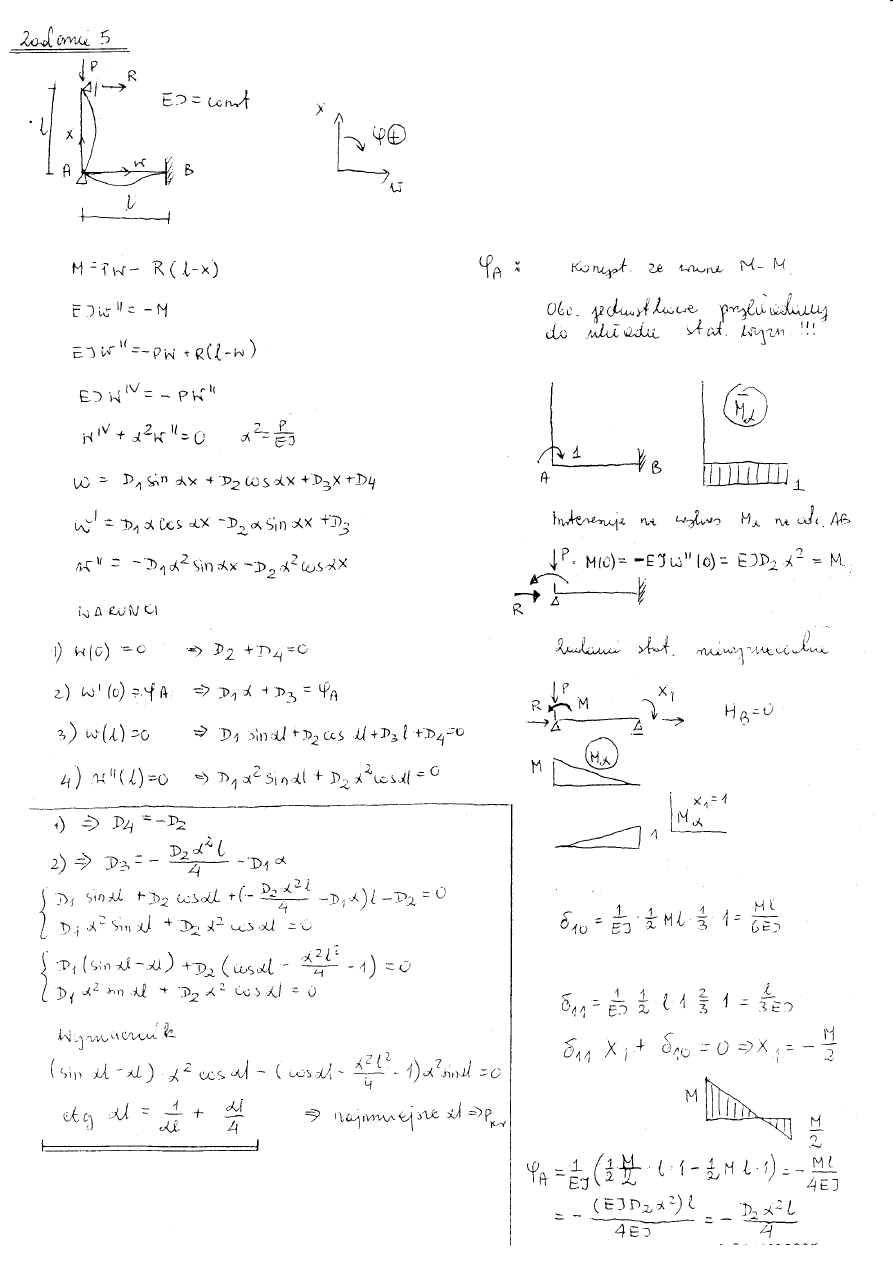 Zadanie 5
P
R
EJ = const
l
x
A
w
B
l
x
φ ⊕
w
M = Pw - R(l-x)
EJw'' = -M
EJw'' = -Pw + R(l-w)
EJw^IV = -Pw''
w^IV + α²w'' = 0 α² = P/EJ
w = D₁ sin αx + D₂ cos αx + D₃x + D₄
w' = D₁α cos αx - D₂α sin αx + D₃
w'' = -D₁α² sin αx - D₂α² cos αx
WARUNKI
1) w(0) = 0 ⇒ D₂ + D₄ = 0
2) w'(0) = φA ⇒ D₁α + D₃ = φA
3) w(l) = 0 ⇒ D₁ sin αl + D₂ cos αl + D₃l + D₄ = 0
4) w''(l) = 0 ⇒ D₁α² sin αl + D₂α² cos αl = 0
1) ⇒ D₄ = -D₂
2) ⇒ D₃ = - D₂α²l/4 - D₁α
D₁ sin αl + D₂ cos αl + (- D₂α²l/4 - D₁α)l - D₂ = 0
D₁α² sin αl + D₂α² cos αl = 0
D₁(sin αl - αl) + D₂(cos αl - α²l²/4 - 1) = 0
D₁α² sin αl + D₂α² cos αl = 0
Wyznacznik
(sin αl - αl)·α² cos αl - (cos αl - α²l²/4 - 1)α² sin αl = 0
ctg αl = 1/αl + αl/4 ⇒ najmniejsze αl ⇒ Pkr
φA : Korzyst. ze M-M.
Obc. jednostkowe przykładamy
do układu stat. wyzn. !!!
1
A
B
M̄α
1
Interesuje na wykres Mα na odc. AB
P
M(0) = -EJw''(0) = EJD₂α² = M
R
Zadanie stat. niewyznaczalne
P
R
M
X₁
H_B = 0
M
Mα
1
Mα X₁=1
δ₁₀ = 1/EJ · 1/2 Ml · 1/3 · 1 = Ml/6EJ
δ₁₁ = 1/EJ 1/2 l·1 2/3 1 = l/3EJ
δ₁₁ X₁ + δ₁₀ = 0 ⇒ X₁ = - M/2
M
M/2
φA = 1/EJ (1/2 M/2 · l·1 - 1/2 M l·1) = - Ml/4EJ
= - (EJD₂α²)l/4EJ = - D₂α²l/4